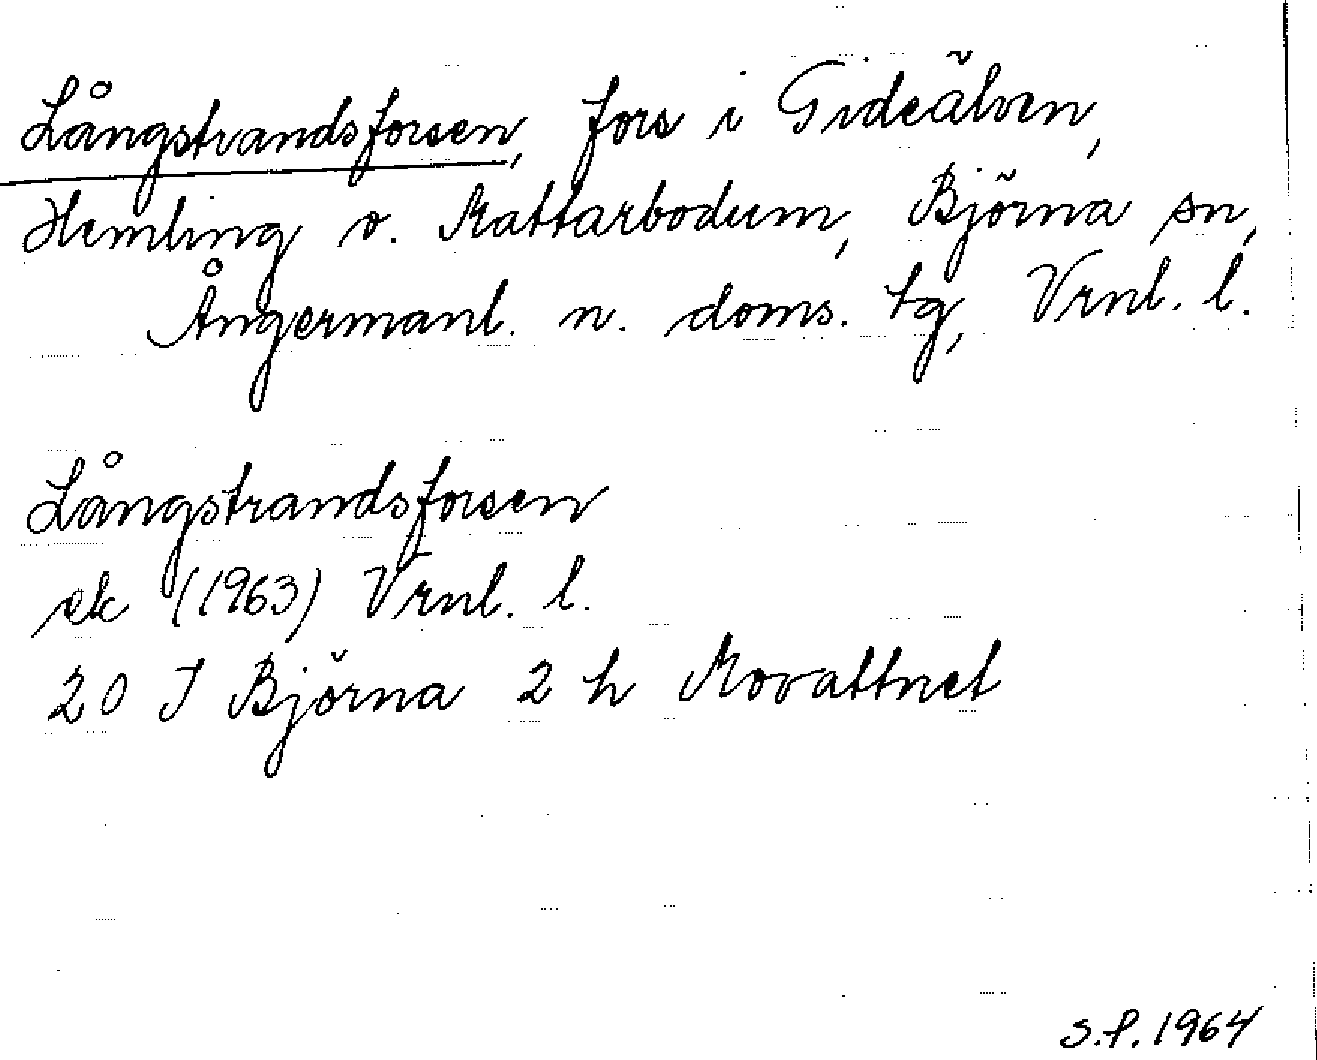 Långstrandsforsen, fors i Gideälven,
Hemling o. Mattarbodum, Björna sn,
Ångermanl. n. doms. tg, Vrnl. l.
Långstrandsforsen
ek (1963) Vrnl. l.
20 I Björna 2 h Movattnet
S.P. 1964